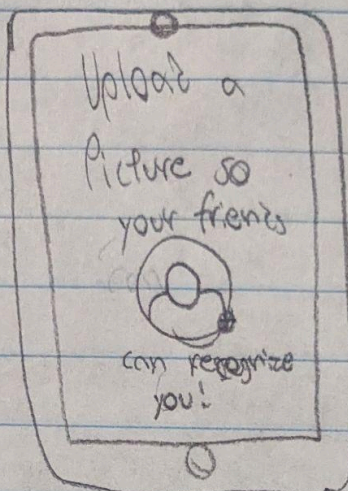 Upload a
Picture so
your friends
can recognize
you!